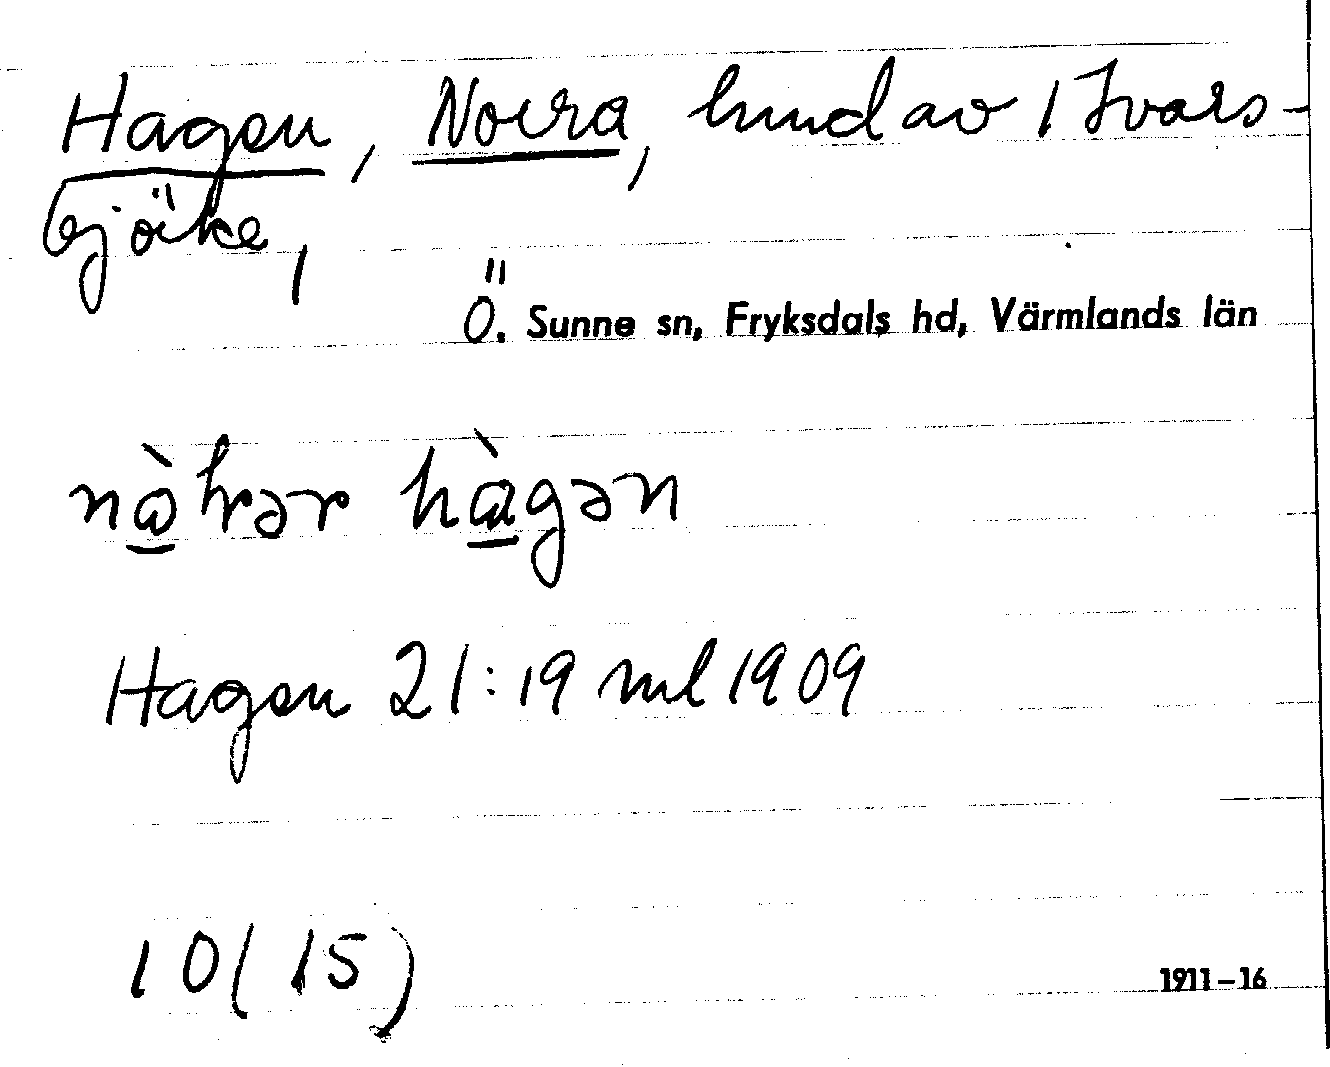 Hagen, Norra, hmd av 1 Ivars-
björke,
Ö. Sunne sn, Fryksdals hd, Värmlands län
nɷ̀hrər hɷ̀gən
Hagen 21:19 ml 1909
10(15)
1911–16